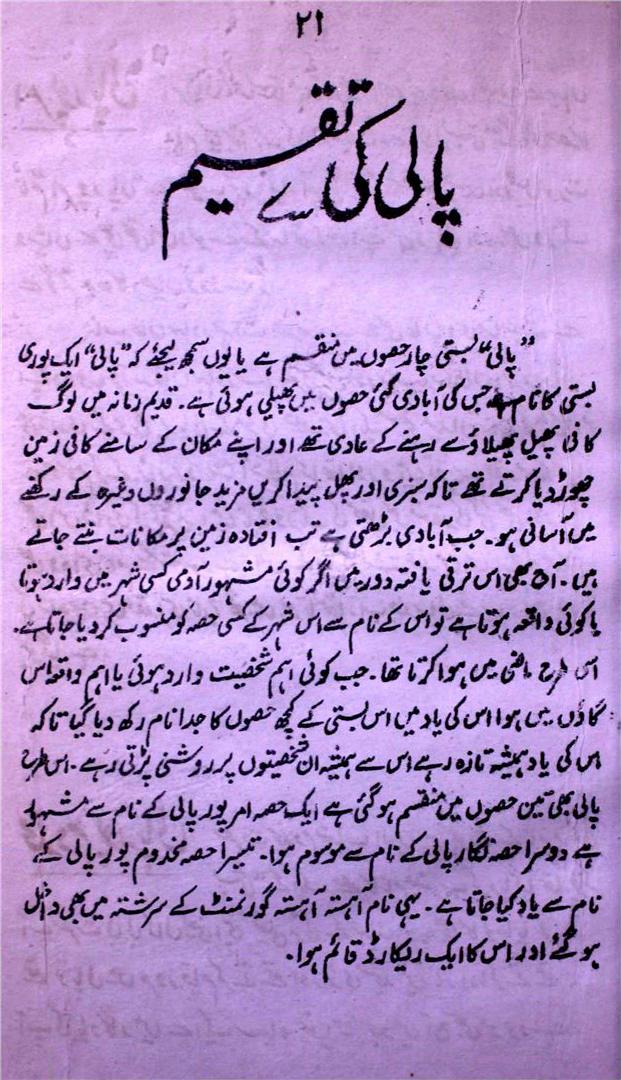 ۲۱
پالی کی تقسیم
”پالی“ بستی چار حصوں میں منقسم ہے یا یوں سمجھ لیجئے کہ ”پالی“ ایک پوری
بستی کا نام ہے جس کی آبادی کئی حصوں میں پھیلی ہوئی ہے۔ قدیم زمانہ میں لوگ
کافی پھیل پھیلاؤ سے رہنے کے عادی تھے اور اپنے مکان کے سامنے کافی زمین
چھوڑ دیا کرتے تھے تاکہ سبزی اور پھل پیدا کریں مزید جانوروں وغیرہ کے رکھنے
میں آسانی ہو۔ جب آبادی بڑھتی ہے تب افتادہ زمین پر مکانات بنتے جاتے
ہیں۔ آج بھی اس ترقی یافتہ دور میں اگر کوئی مشہور آدمی کسی شہر میں وارد ہوتا
یا کوئی واقعہ ہوتا ہے تو اس کے نام سے اس شہر کے کسی حصہ کو منسوب کر دیا جاتا ہے۔
اس طرح ماضی میں ہوا کرتا تھا۔ جب کوئی اہم شخصیت وارد ہوئی یا اہم واقعہ اس
گاؤں میں ہوا اس کی یاد میں اس بستی کے کچھ حصوں کا جدا نام رکھ دیا گیا تاکہ
اس کی یاد ہمیشہ تازہ رہے اس سے ہمیشہ ان شخصیتوں پر روشنی پڑتی رہے۔ اس طرح
پالی بھی تین حصوں میں منقسم ہو گئی ہے ایک حصہ امر پور پالی کے نام سے مشہور
ہے دوسرا حصہ لگار پالی کے نام سے موسوم ہوا۔ تیسرا حصہ مخدوم پور پالی کے
نام سے یاد کیا جاتا ہے۔ یہی نام آہستہ آہستہ گورنمنٹ کے سرشتہ میں بھی داخل
ہو گئے اور اس کا ایک ریکارڈ قائم ہوا۔